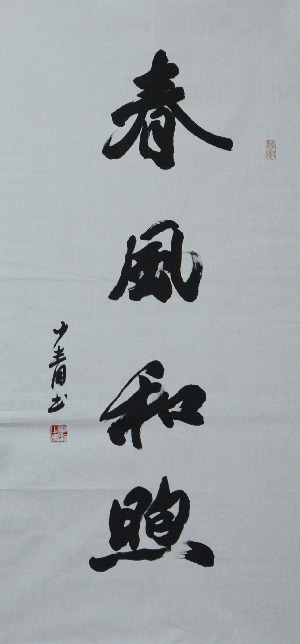 春風和煦
少青书